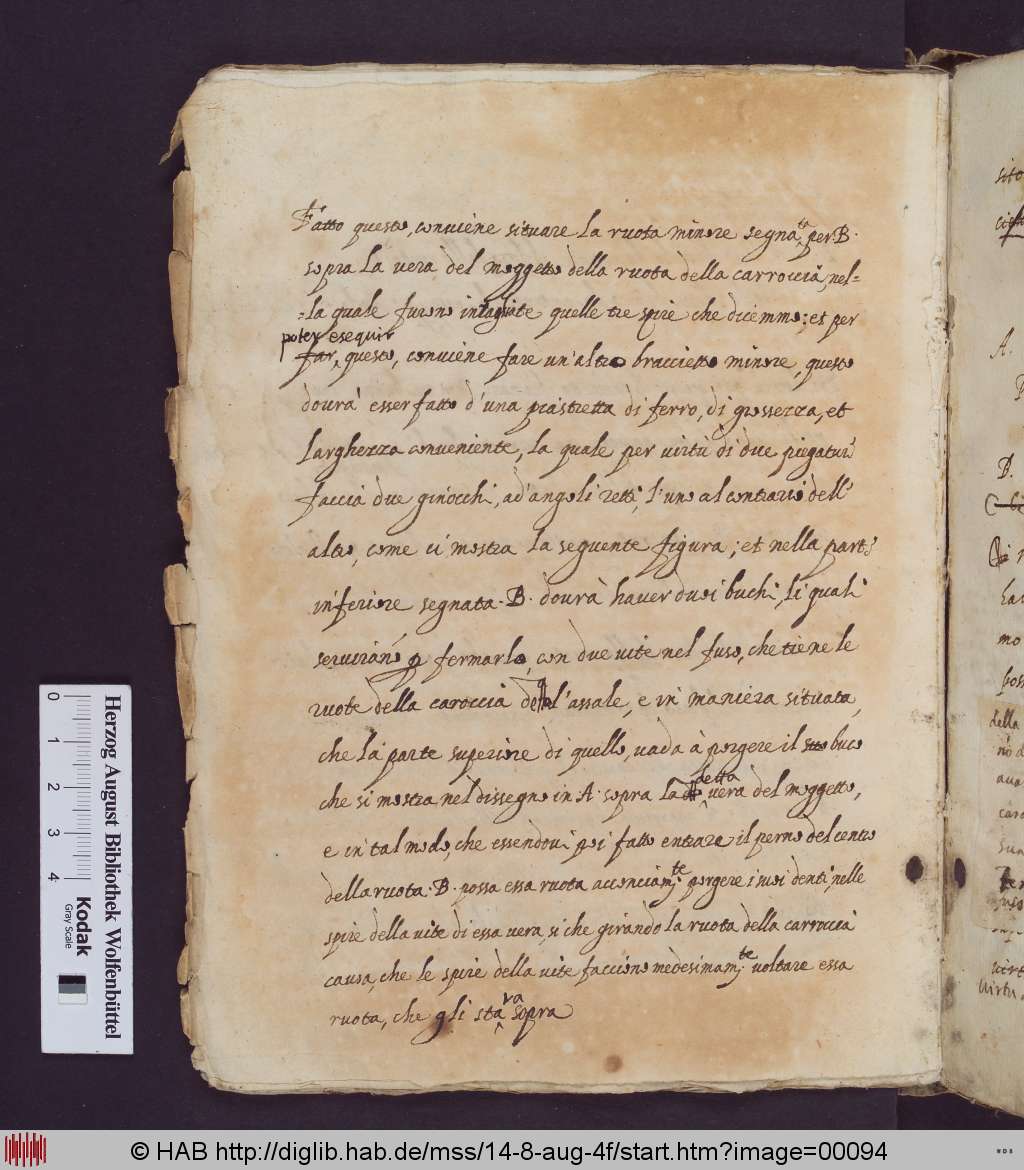 Fatto questo, conviene situare la ruota minore segnata per B.
sopra la vera del moggetto della ruota della carroccia, nel=
=la quale furono intagliate quelle tre spire che dicemmo; et per
poter esequir
far questo, conviene fare un'altro braccietto minore, questo
dourà esser fatto d'una piastretta di ferro, di grossezza, et
larghezza conveniente, la quale per virtù di due piegature
faccia due ginocchi, ad'angoli retti, l'uno al contrario dell'
altro, come ci mostra la seguente figura; et nella parte
inferiore segnata. B. dourà haver duoi buchi, li quali
serviranno p fermarlo, con due vite nel fuso, che tiene le
ruote della caroccia dell'assale, e in maniera situata,
che la parte superiore di quello, vada à porgere il suo buco
che si mostra nel dissegno in A. sopra la detta vera del moggetto,
e in tal modo, che essendovi poi fatto entrare il perno del centro
della ruota. B. possa essa ruota acconciam.te porgere i suoi denti, nelle
spire della vite di essa vera, si che girando la ruota della carroccia
causa, che le spire della vite faccione medesimam.te voltare essa
ruota, che gli starà sopra
sito
A.
B.
mo
della
Herzog August Bibliothek Wolfenbüttel
0 1 2 3 4
Kodak
Gray Scale
© HAB http://diglib.hab.de/mss/14-8-aug-4f/start.htm?image=00094